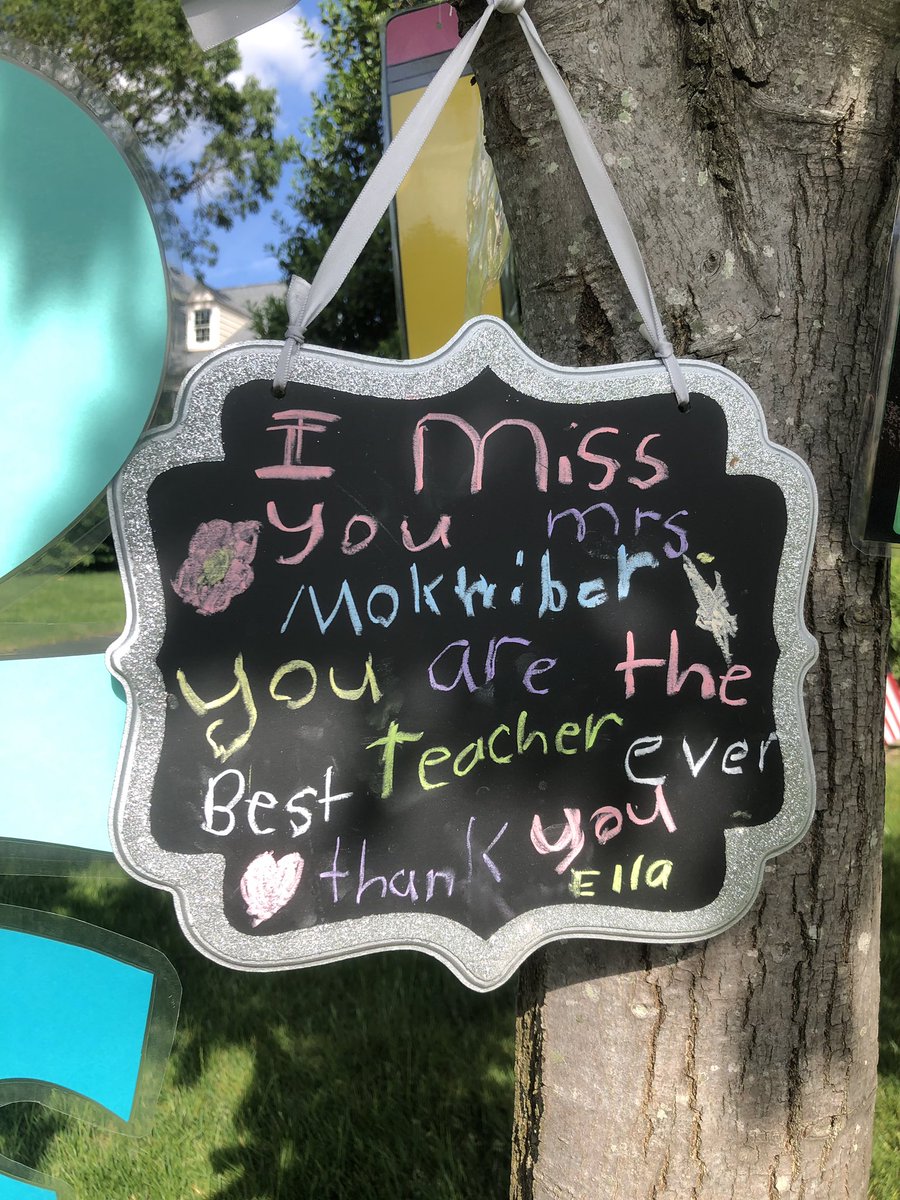 I Miss
You mrs
Mokhiber
you are the
Best teacher ever
thank you
Ella